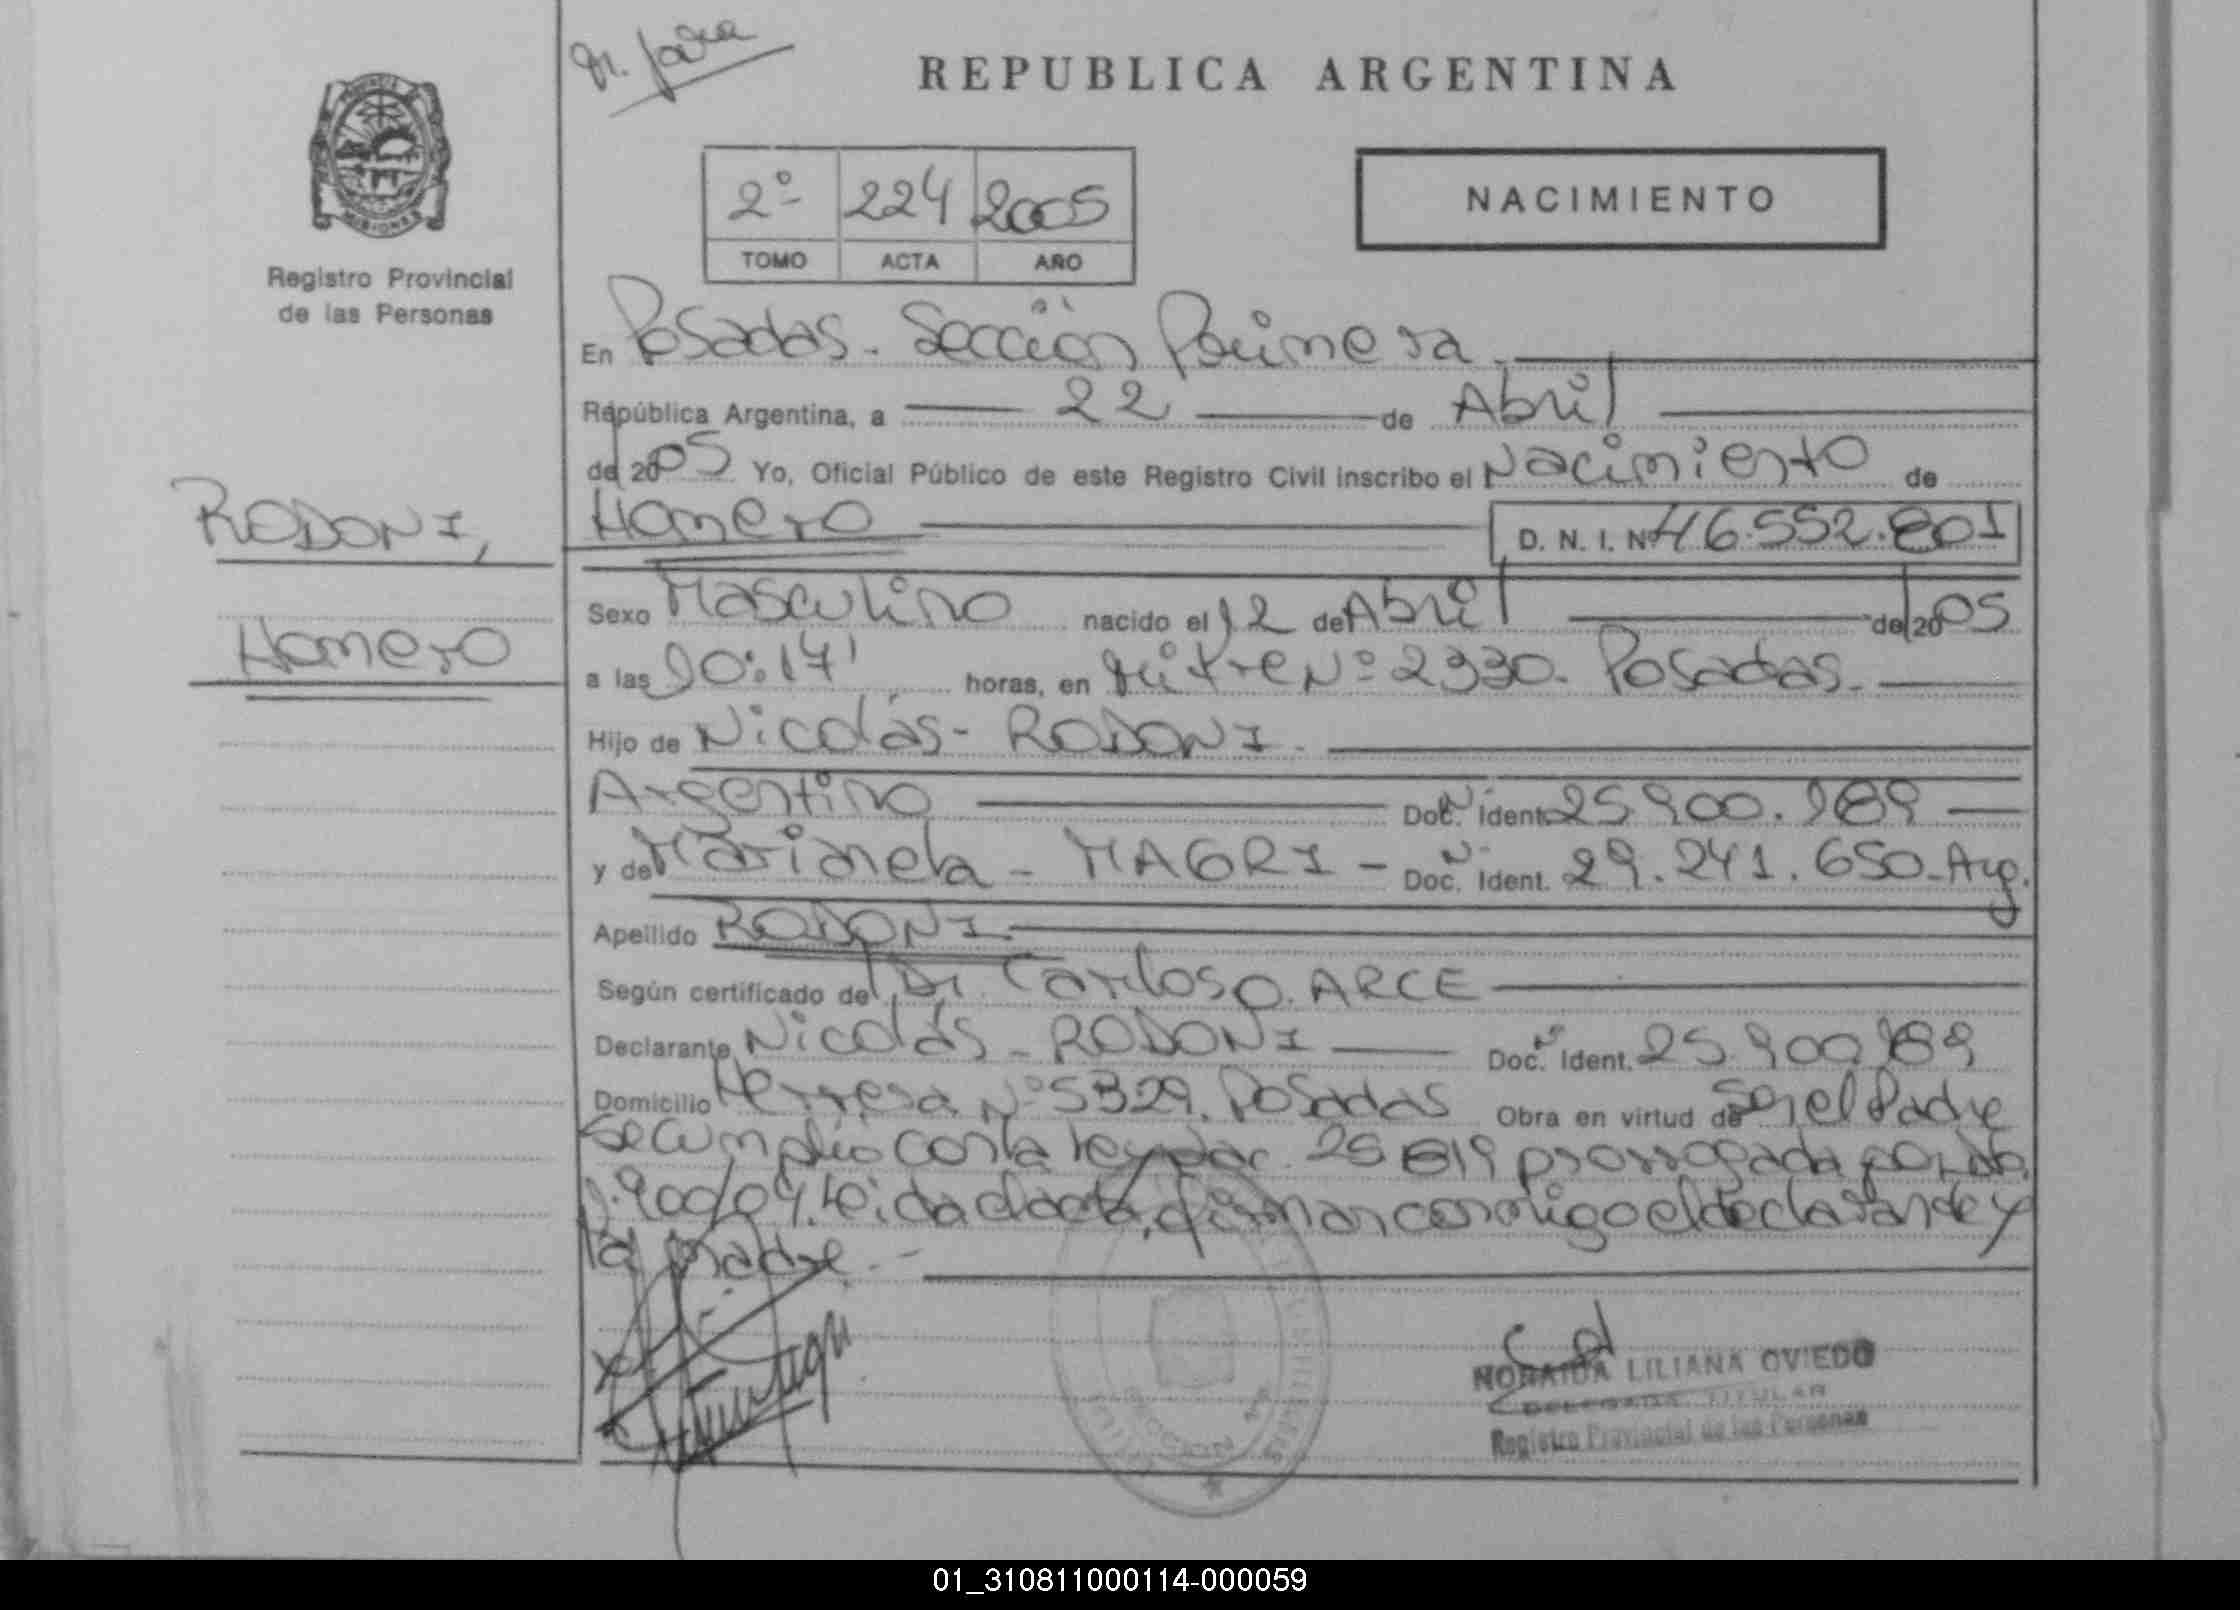 REPUBLICA ARGENTINA
PROVINCIA DE
MISIONES
Registro Provincial
de las Personas
2º 224 2005
TOMO ACTA AÑO
NACIMIENTO
En Posadas. Sección Primera.
República Argentina, a 22 de Abril
del 2005 Yo, Oficial Público de este Registro Civil inscribo el Nacimiento de
RODONI,
Homero
Homero D. N. I. Nº 46.552.801
Sexo Masculino nacido el 12 de Abril del 2005
a las 10:17' horas, en Mitre Nº 2330. Posadas.
Hijo de Nicolás - RODONI.
Argentino Doc. Ident. 25.900.189
y de Marianela - MAGRI - Doc. Ident. 29.241.650 - Arg.
Apellido RODONI.
Según certificado del Dr. Carlos O. ARCE
Declarante Nicolás - RODONI Doc. Ident. 25.900.189
Domicilio Herrera Nº 5329. Posadas Obra en virtud de Ser el Padre
Se cumplió con la ley nac. 25819 prorrogada por
1.900/04. Leida el acta, firman conmigo el declarante y
la madre.-
NORAIDA LILIANA OVIEDO
DELEGADA TITULAR
Registro Provincial de las Personas
01_310811000114-000059